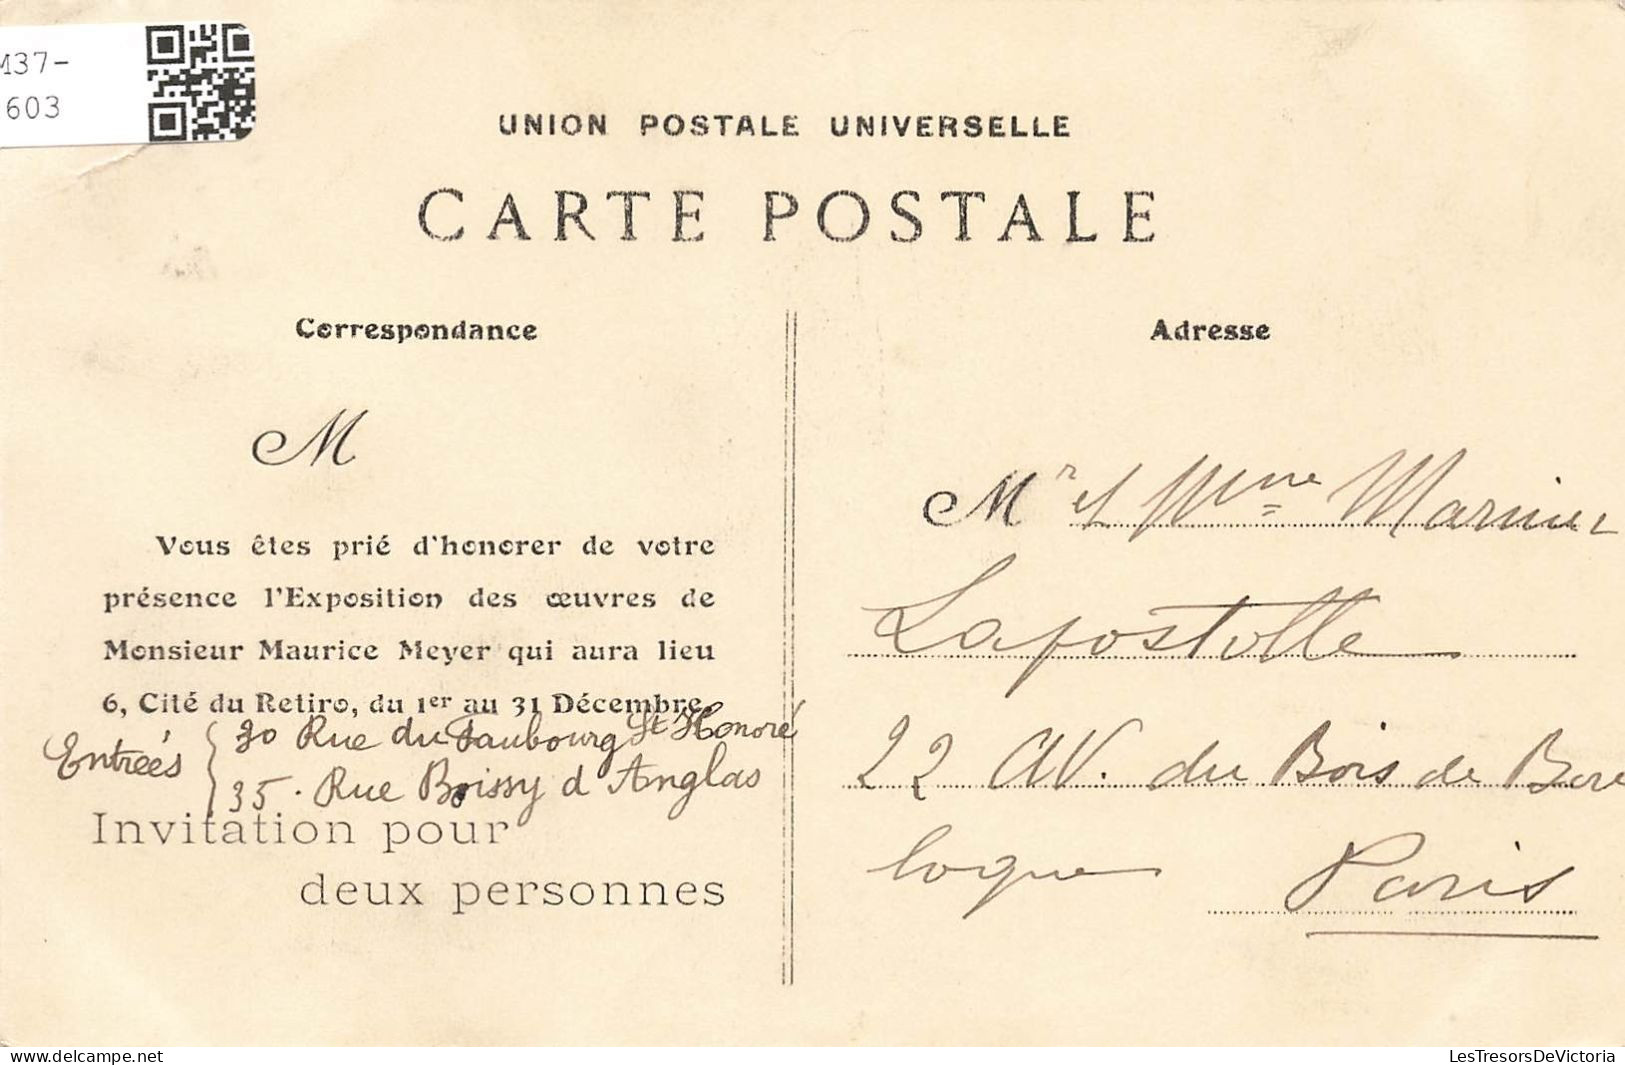 M37-
603
UNION POSTALE UNIVERSELLE
CARTE POSTALE
Correspondance
M
Vous êtes prié d'honorer de votre
présence l'Exposition des œuvres de
Monsieur Maurice Meyer qui aura lieu
6, Cité du Retiro, du 1er au 31 Décembre.
Entrées { 30 Rue du Faubourg St Honoré
35. Rue Boissy d'Anglas
Invitation pour
deux personnes
Adresse
Mr et Mme Marnier
Lapostolle
22 AV. du Bois de Bou
logne Paris
delcampe.net
LesTresorsDeVictoria